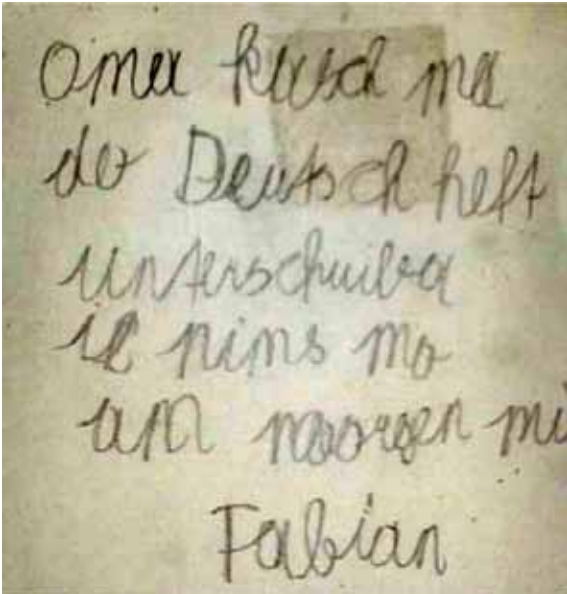 Oma kasch ma
do Deutsch heft
unterschriba
i nims mo
am moorgen mi
Fabian